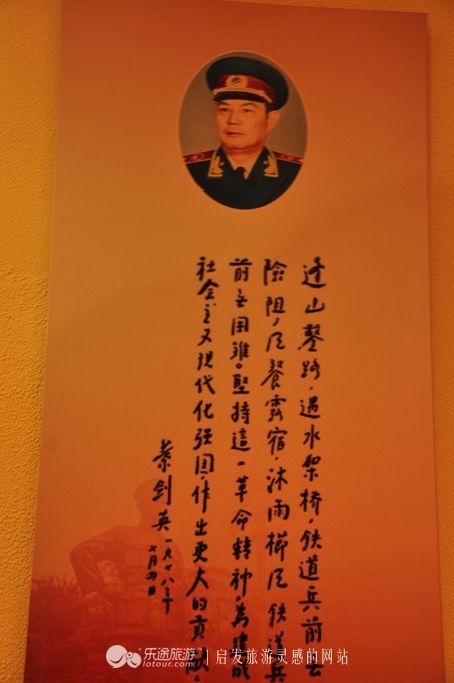 逢山鑿路,遇水架桥,铁道兵前无
險阻,风餐露宿,沐雨櫛风,铁道兵
前无困难。堅持這一革命精神,為建成
社会主义现代化强国,作出更大的貢献。
葉剑英一九七八年
七月四日
乐途旅游
lotour.com
启发旅游灵感的网站